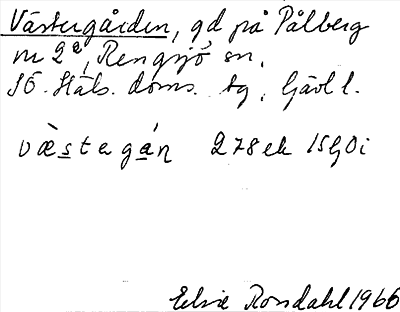 Västergården, gd på Pålberg
nr 2ª, Rengsjö sn,
SÖ. Häls. doms. tg, Gävl l.
væ̀stagán 278ek 15G0i
Elsie Rondahl 1966